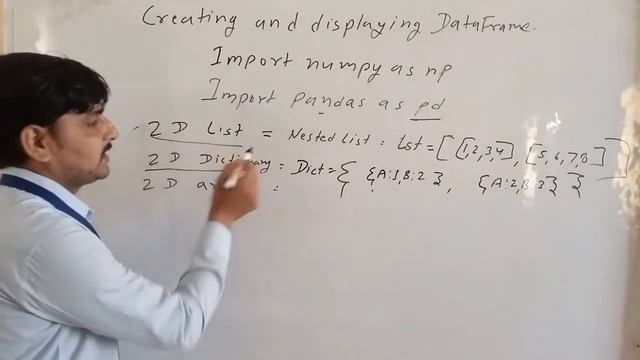 Creating and displaying DataFrame.
Import numpy as np
Import pandas as pd
2 D List = Nested List : Lst = [ [1,2,3,4] , [5,6,7,8] ]
2 D Dictionary : Dict = { {A:1,B:2} , {A:2,B:3} }
2 D :